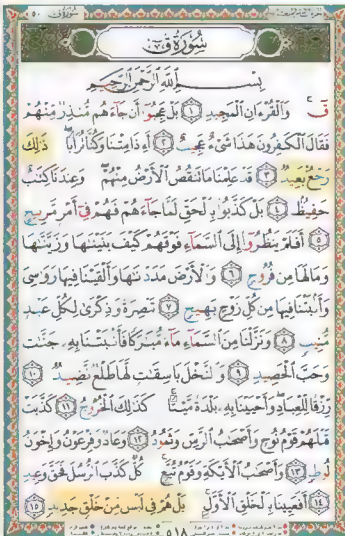 سُورَةُ قٓ
بِسْمِ ٱللَّهِ ٱلرَّحْمَٰنِ ٱلرَّحِيمِ
قٓ وَٱلْقُرْءَانِ ٱلْمَجِيدِ ١ بَلْ عَجِبُوٓا۟ أَن جَآءَهُم مُّنذِرٌ مِّنْهُمْ
فَقَالَ ٱلْكَٰفِرُونَ هَٰذَا شَىْءٌ عَجِيبٌ ٢ أَءِذَا مِتْنَا وَكُنَّا تُرَابًا ذَٰلِكَ
رَجْعٌۢ بَعِيدٌ ٣ قَدْ عَلِمْنَا مَا تَنقُصُ ٱلْأَرْضُ مِنْهُمْ وَعِندَنَا كِتَٰبٌ
حَفِيظٌۢ ٤ بَلْ كَذَّبُوا۟ بِٱلْحَقِّ لَمَّا جَآءَهُمْ فَهُمْ فِىٓ أَمْرٍ مَّرِيجٍ
٥ أَفَلَمْ يَنظُرُوٓا۟ إِلَى ٱلسَّمَآءِ فَوْقَهُمْ كَيْفَ بَنَيْنَٰهَا وَزَيَّنَّٰهَا
وَمَا لَهَا مِن فُرُوجٍ ٦ وَٱلْأَرْضَ مَدَدْنَٰهَا وَأَلْقَيْنَا فِيهَا رَوَٰسِىَ
وَأَنۢبَتْنَا فِيهَا مِن كُلِّ زَوْجٍۭ بَهِيجٍ ٧ تَبْصِرَةً وَذِكْرَىٰ لِكُلِّ عَبْدٍ
مُّنِيبٍ ٨ وَنَزَّلْنَا مِنَ ٱلسَّمَآءِ مَآءً مُّبَٰرَكًا فَأَنۢبَتْنَا بِهِۦ جَنَّٰتٍ
وَحَبَّ ٱلْحَصِيدِ ٩ وَٱلنَّخْلَ بَاسِقَٰتٍ لَّهَا طَلْعٌ نَّضِيدٌ ١٠
رِّزْقًا لِّلْعِبَادِ وَأَحْيَيْنَا بِهِۦ بَلْدَةً مَّيْتًا كَذَٰلِكَ ٱلْخُرُوجُ ١١ كَذَّبَتْ
قَبْلَهُمْ قَوْمُ نُوحٍ وَأَصْحَٰبُ ٱلرَّسِّ وَثَمُودُ ١٢ وَعَادٌ وَفِرْعَوْنُ وَإِخْوَٰنُ
لُوطٍ ١٣ وَأَصْحَٰبُ ٱلْأَيْكَةِ وَقَوْمُ تُبَّعٍ كُلٌّ كَذَّبَ ٱلرُّسُلَ فَحَقَّ وَعِيدِ
١٤ أَفَعَيِينَا بِٱلْخَلْقِ ٱلْأَوَّلِ بَلْ هُمْ فِى لَبْسٍ مِّنْ خَلْقٍ جَدِيدٍ ١٥
٥١٨